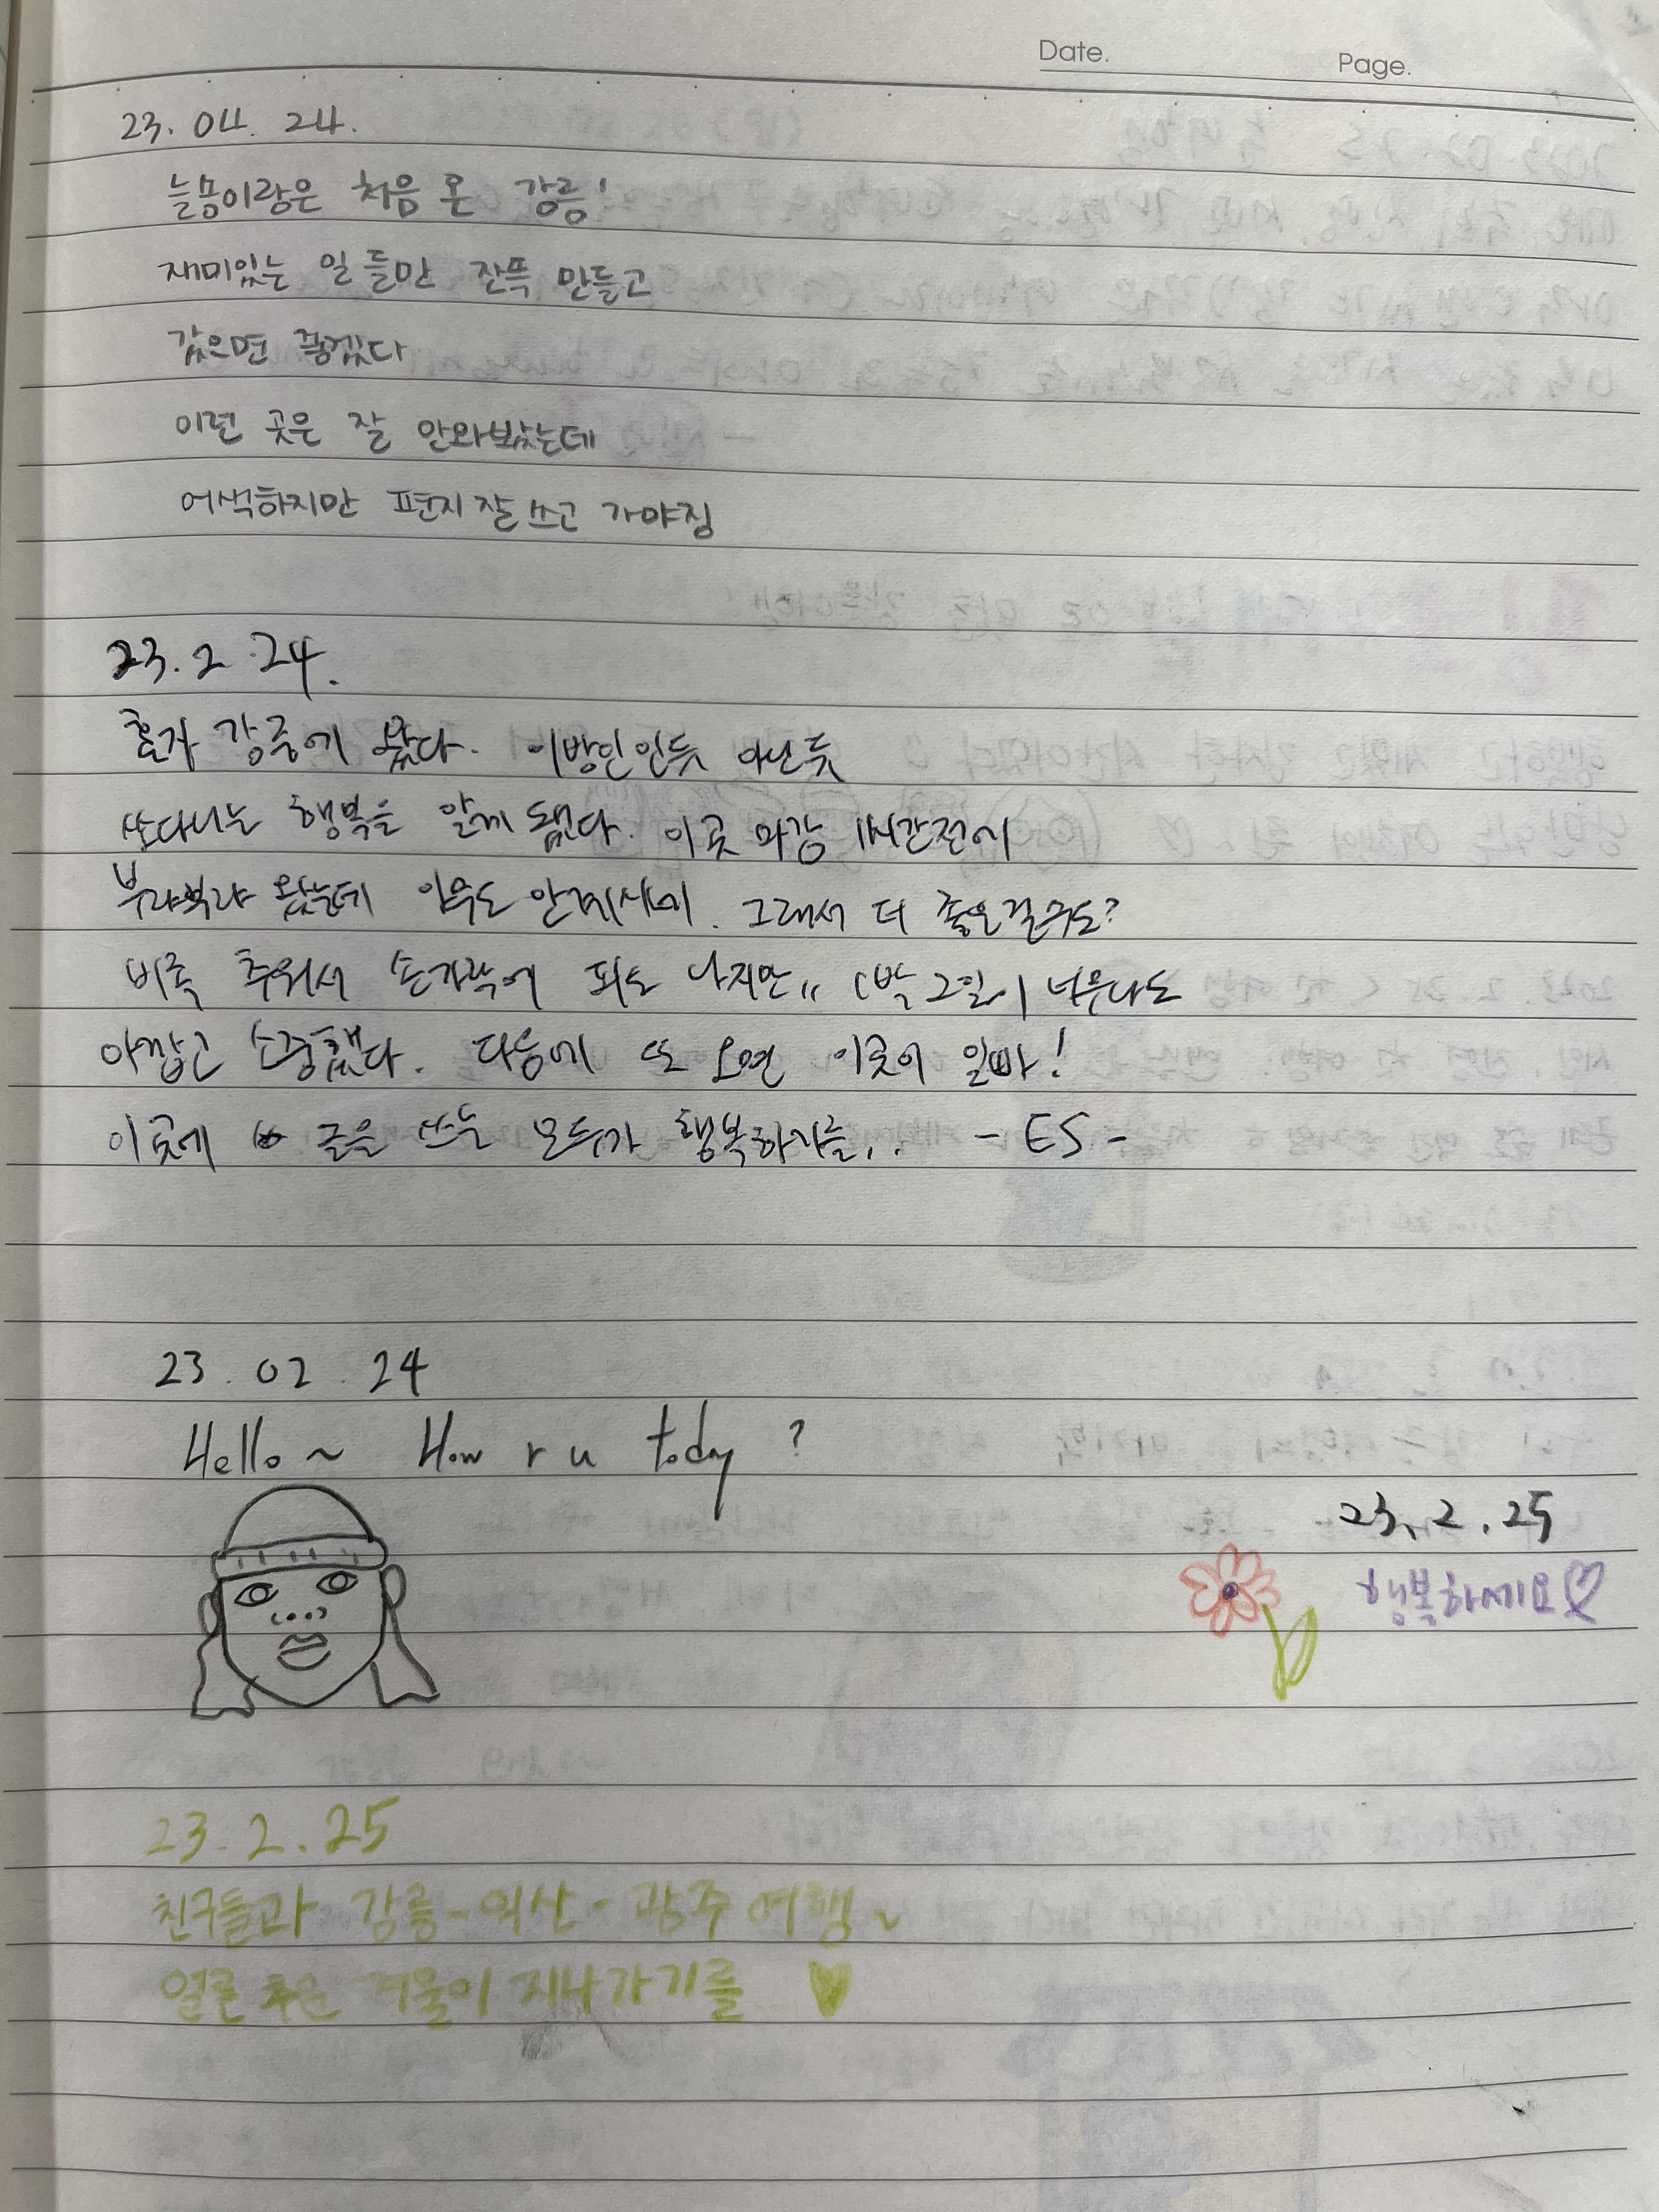 Date.
Page.
23. 04. 24.
늘품이랑은 처음 온 강릉!
재미있는 일들만 잔뜩 만들고
갔으면 좋겠다
이런 곳은 잘 안와봤는데
어색하지만 편지 잘 쓰고 가야징
23. 2. 24.
혼자 강릉에 왔다. 이방인인듯 아닌듯
쏘다니는 행복을 알게 됐다. 이곳 마감 1시간전에
부랴부랴 왔는데 아무도 안계시네. 그래서 더 좋은걸수도?
비록 추워서 손가락에 피도 나지만,, 1박 2일이 너무나도
아깝고 소중했다. 다음에 또 오면 이곳이 일빠!
이곳에 글을 쓰는 모두가 행복하기를.. - ES -
23. 02. 24
Hello~ How r u today?
23. 2. 25
행복하세요♡
23. 2. 25
친구들과 강릉-익산-광주 여행~
얼른 추운 겨울이 지나가기를 ♥